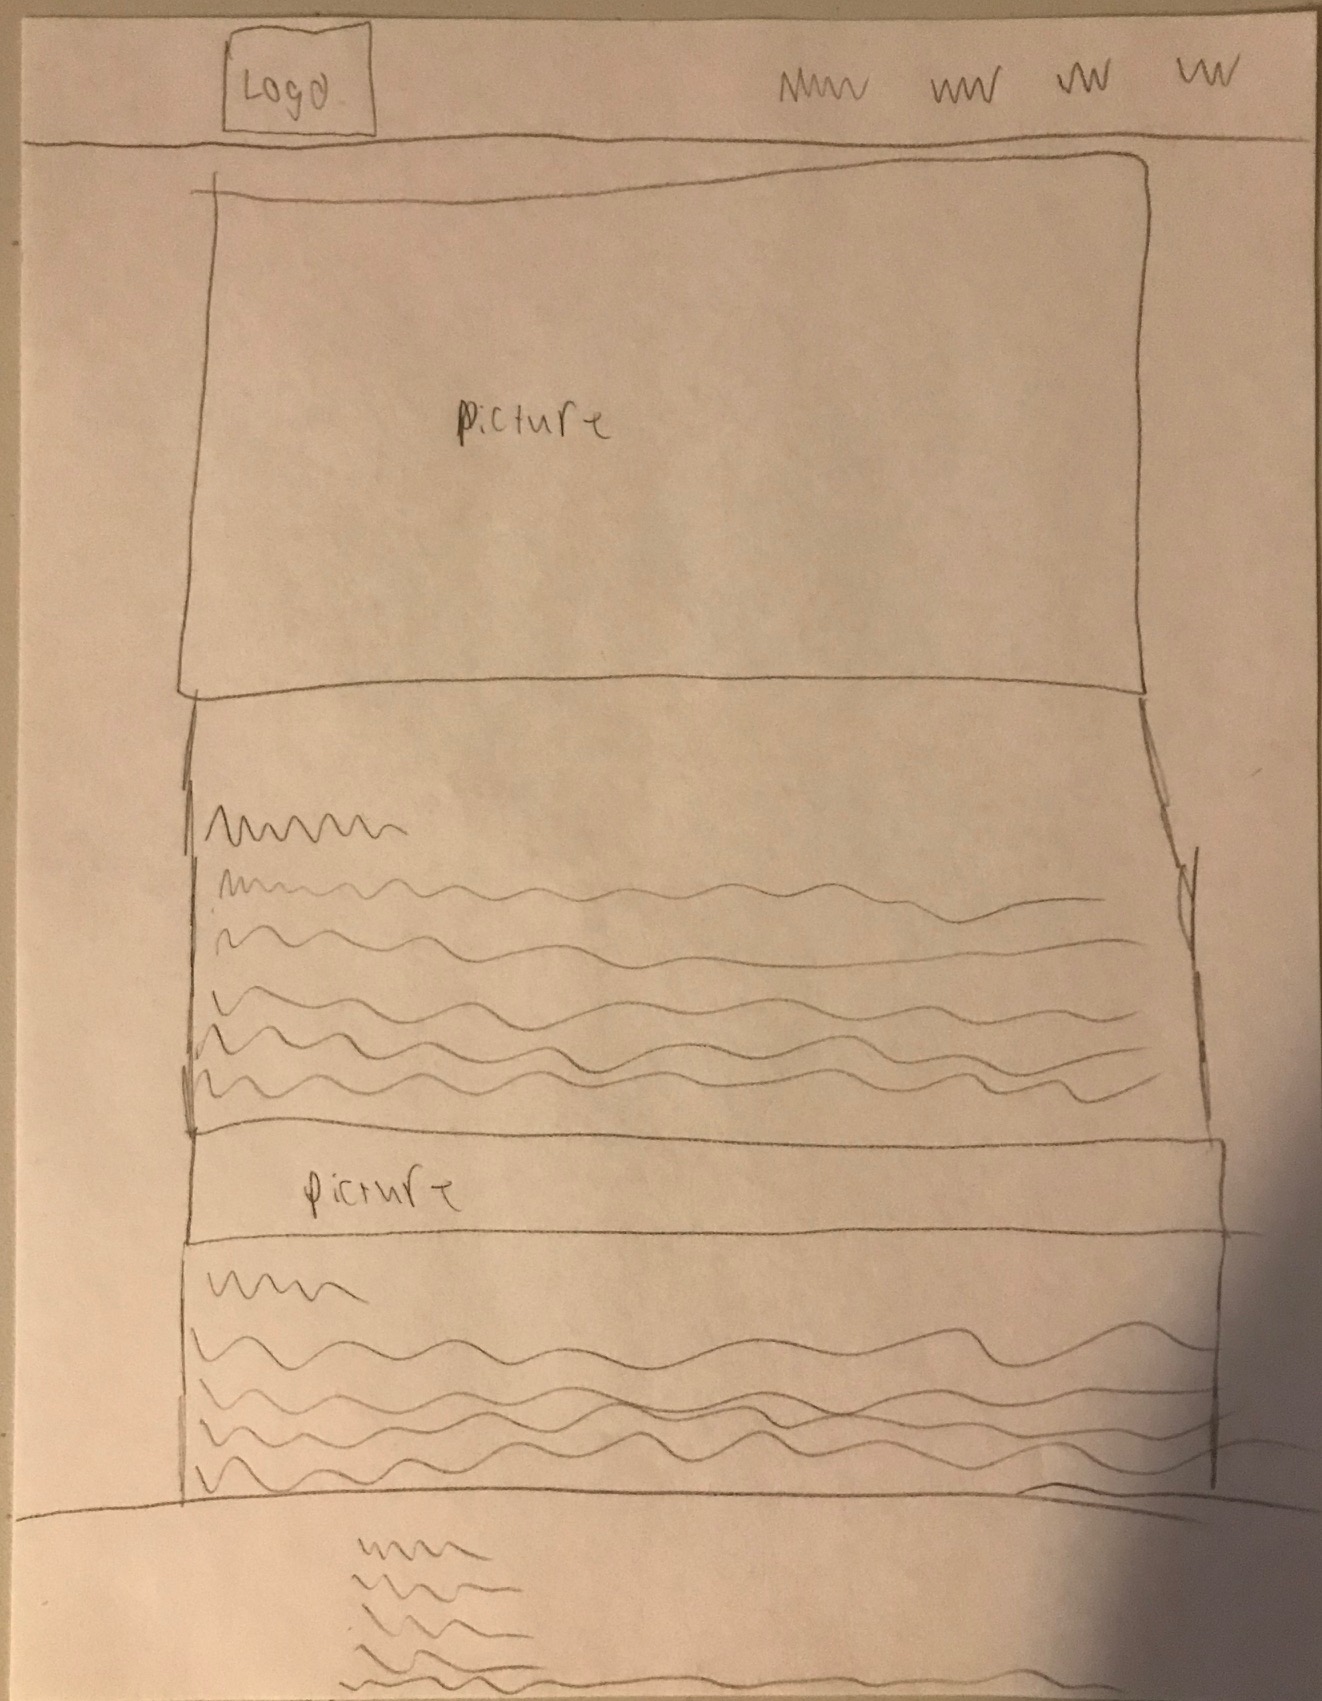 Logo
picture
picture